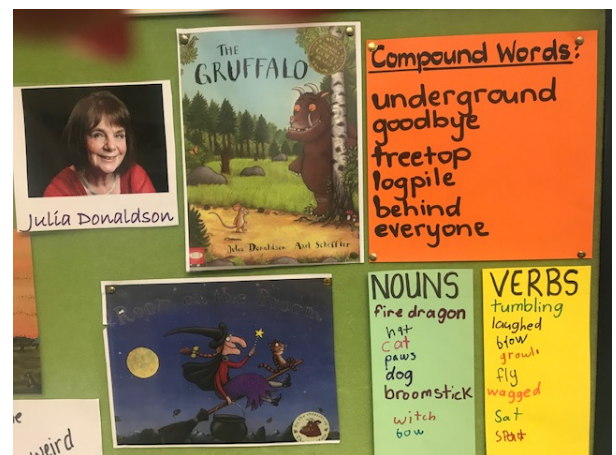 THE
GRUFFALO
Julia Donaldson Axel Scheffler
Julia Donaldson
Compound Words!
underground
goodbye
treetop
logpile
behind
everyone
Room on the Broom
NOUNS
fire dragon
hat
cat
paws
dog
broomstick
witch
bow
VERBS
tumbling
laughed
blow
growl
fly
wagged
Sat
Spat
weird